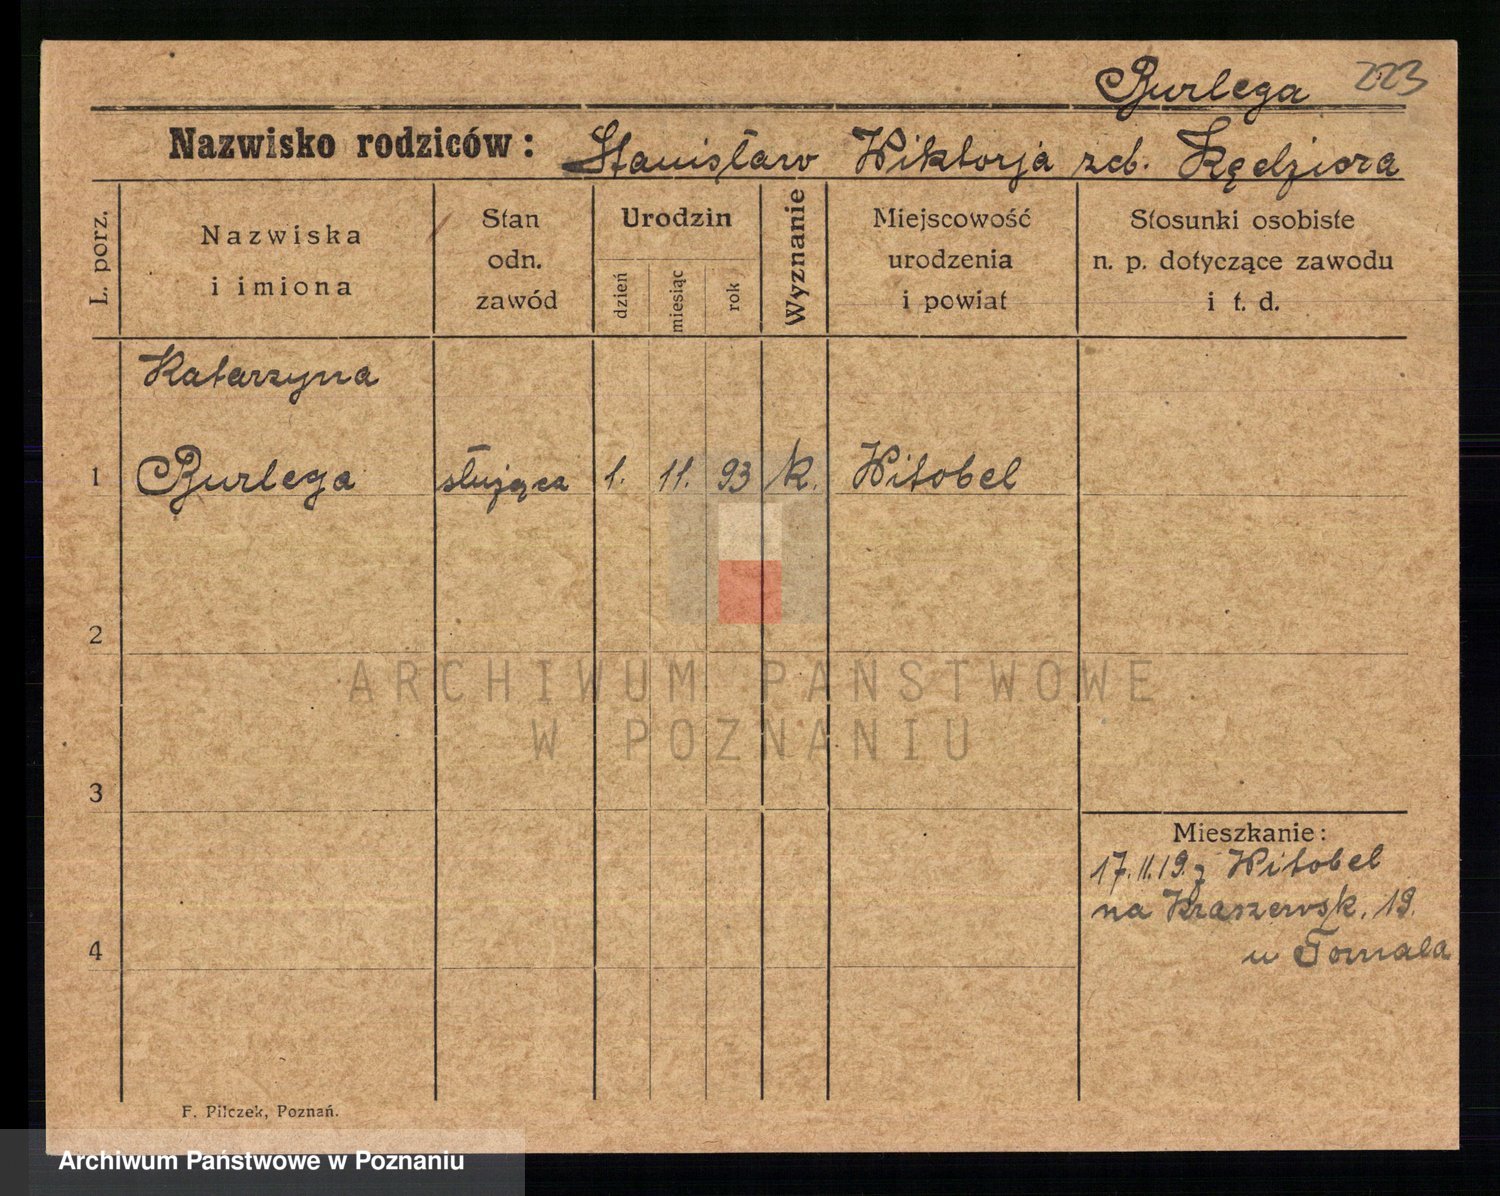 Burlega 223
Nazwisko rodziców: Stanisław Wiktorja zd. Kędziora
L. porz.
Nazwiska
i imiona
Stan
odn.
zawód
Urodzin
dzień
miesiąc
rok
Wyznanie
Miejscowość
urodzenia
i powiat
Stosunki osobiste
n. p. dotyczące zawodu
i t. d.
Katarzyna
1 Burlega służąca 1. 11. 93 k. Witobel
2
ARCHIWUM PAŃSTWOWE
W POZNANIU
3
Mieszkanie:
17.11.19. z Witobel
na Kraszewsk. 19.
4
u Tomala
F. Pilczek, Poznań.
Archiwum Państwowe w Poznaniu